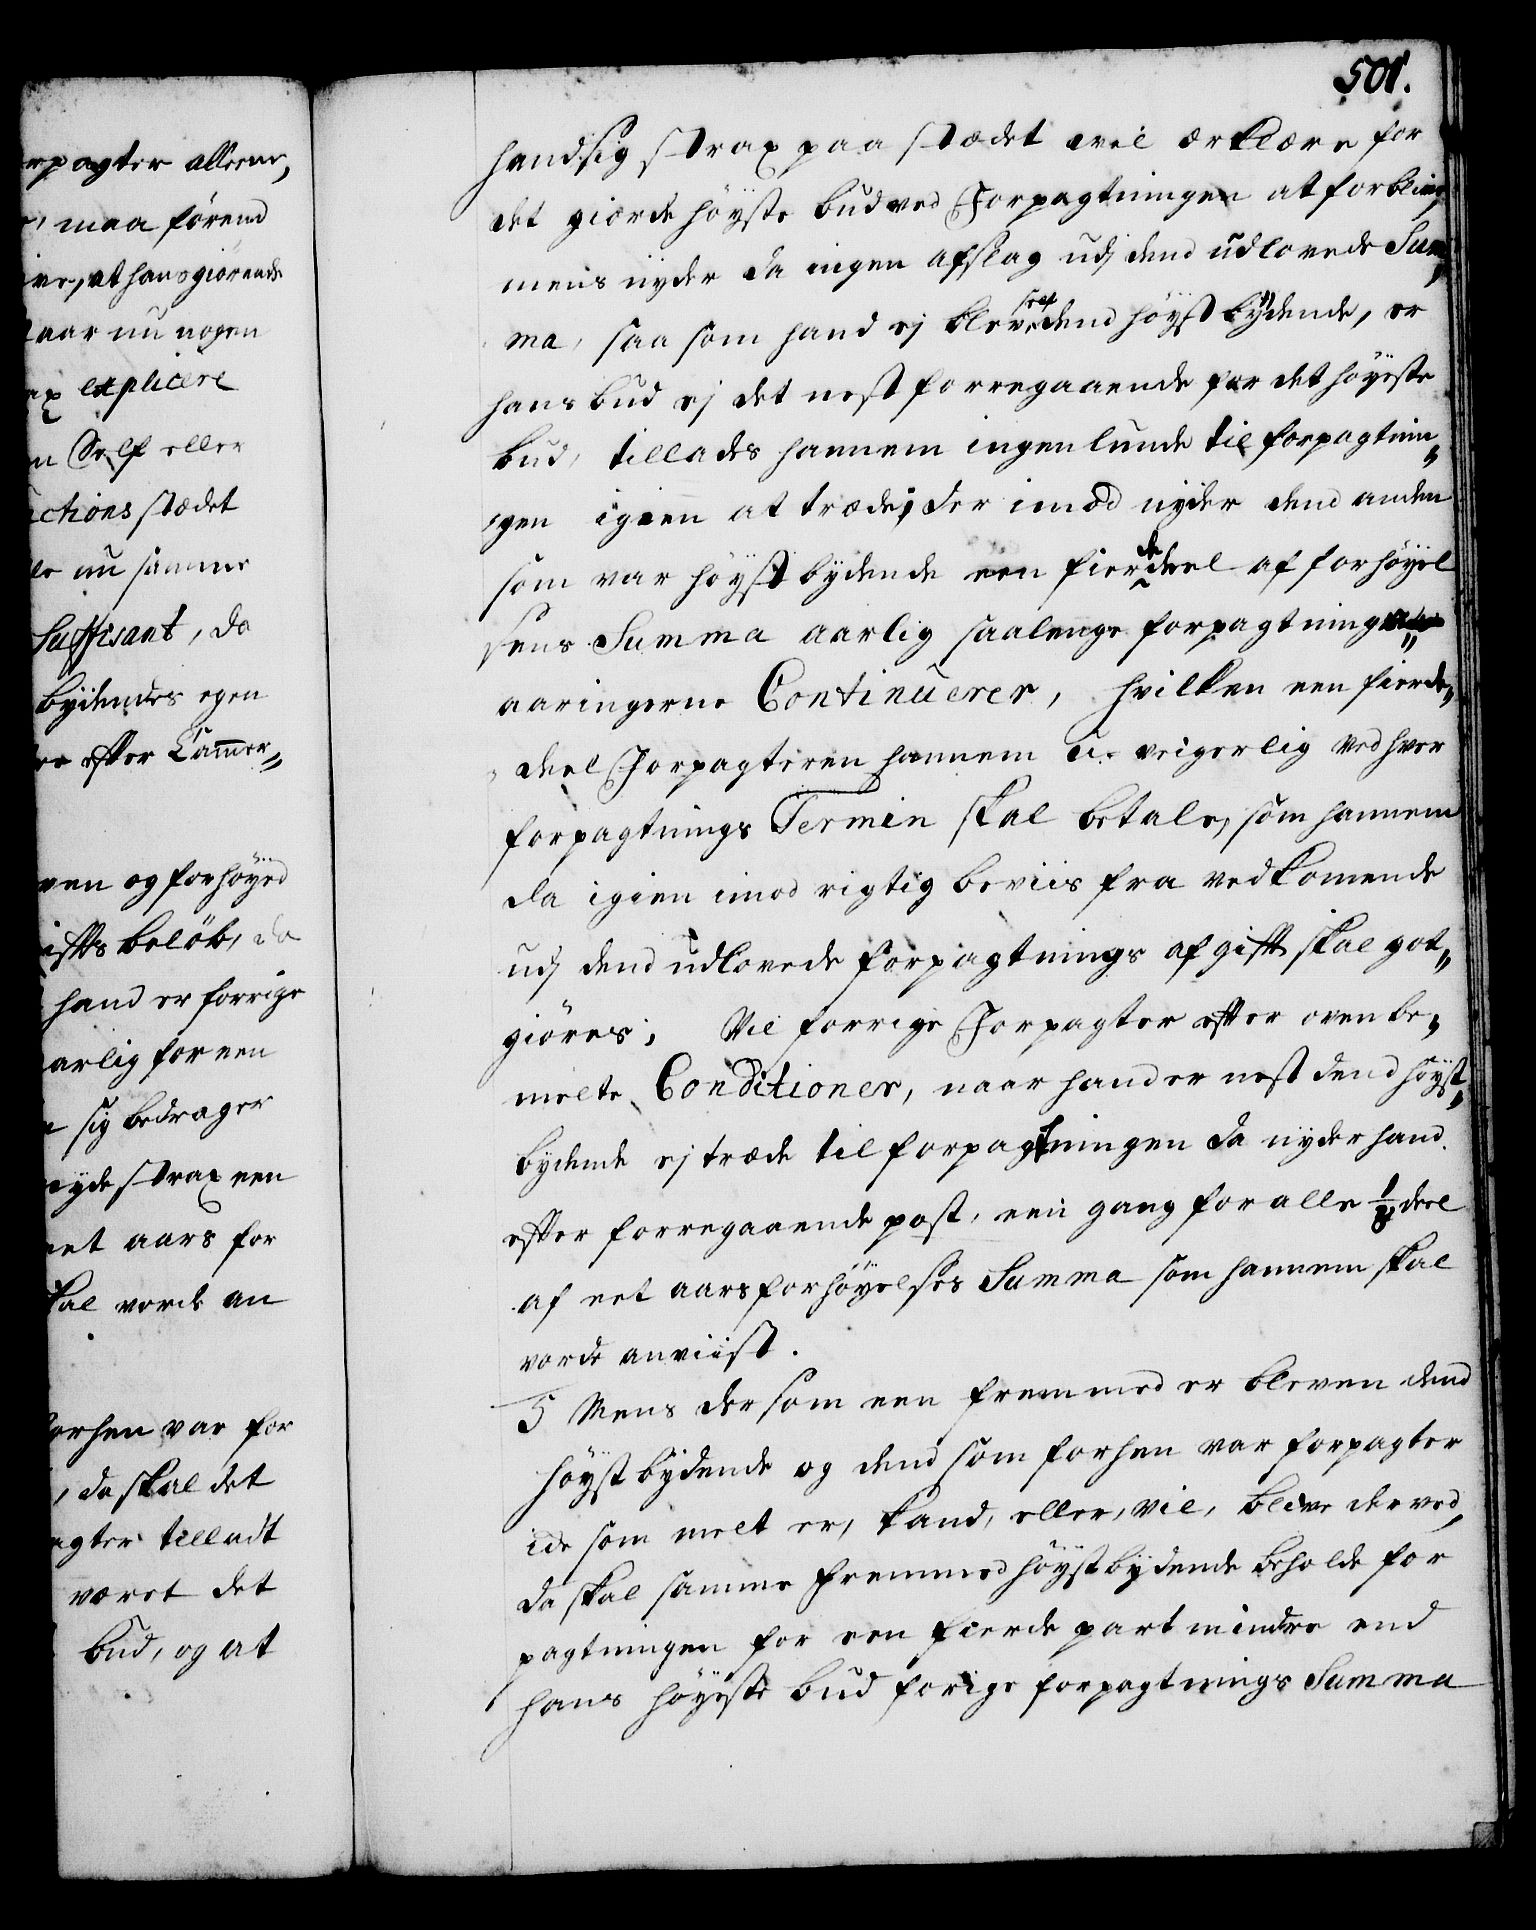 501.
rpagter alleene,
maa förend
ive, at hans giörende
aar nu nogen
ax explicere
n Self eller
uctions stædet
le nu samme
Suffisant, da
bÿdendes egen
re efter Cam̄er„
ven og forhöÿed
iffts belöb, da
hand er forrige
arlig for een
sig bedrager
nyde strax een
eet aars for
kal vorde an
orhen var for
, da skal det
agter tilladt
været det
bud, og at
hand sig strax paa stædet vil erklære for
det giorde höÿste bud ved Forpagtningen at forblive
mens nÿder da ingen afslag udj dend udlovede Sum„
ma, saa som hand ej blev self dend höÿst bÿdende, er
hans bud ej det nest forregaaende for det höÿeste
bud, tillades hannem ingenlunde til forpagtnin„
gen igien at træde; der imod nÿder dend anden
som var höÿst bÿdende een fierdedeel af forhöÿel
sens Summa aarlig saalenge forpagtnings
aaringerne Continuerer, hvilken een fierde„
deel Forpagteren hannem u-veigerlig ved hver
forpagtnings Termin skal betale, som hannem
da igien imod rigtig beviis fra vedkomende
udj dend udlovede forpagtnings afgifft skal got„
giöres; Vil forrige Forpagter efter ovenbe„
melte Conditioner, naar hand er nest dend höÿst„
bÿdende ej træde til forpagtningen da nÿder hand
efter forregaaende post, een gang for alle 1/8 deel
af eet aars forhöÿelses Summa som hannem skal
vorde anviist.
5 Mens dersom een fremmed er bleven dend
höÿst bÿdende og dend som forhen var forpagter
ide som melt er, kand, eller, vil, blive derved,
da skal samme fremmed höÿstbÿdende beholde for
pagtningen for een fierde part mindre end
hans höÿeste bud forige forpagtnings Summa